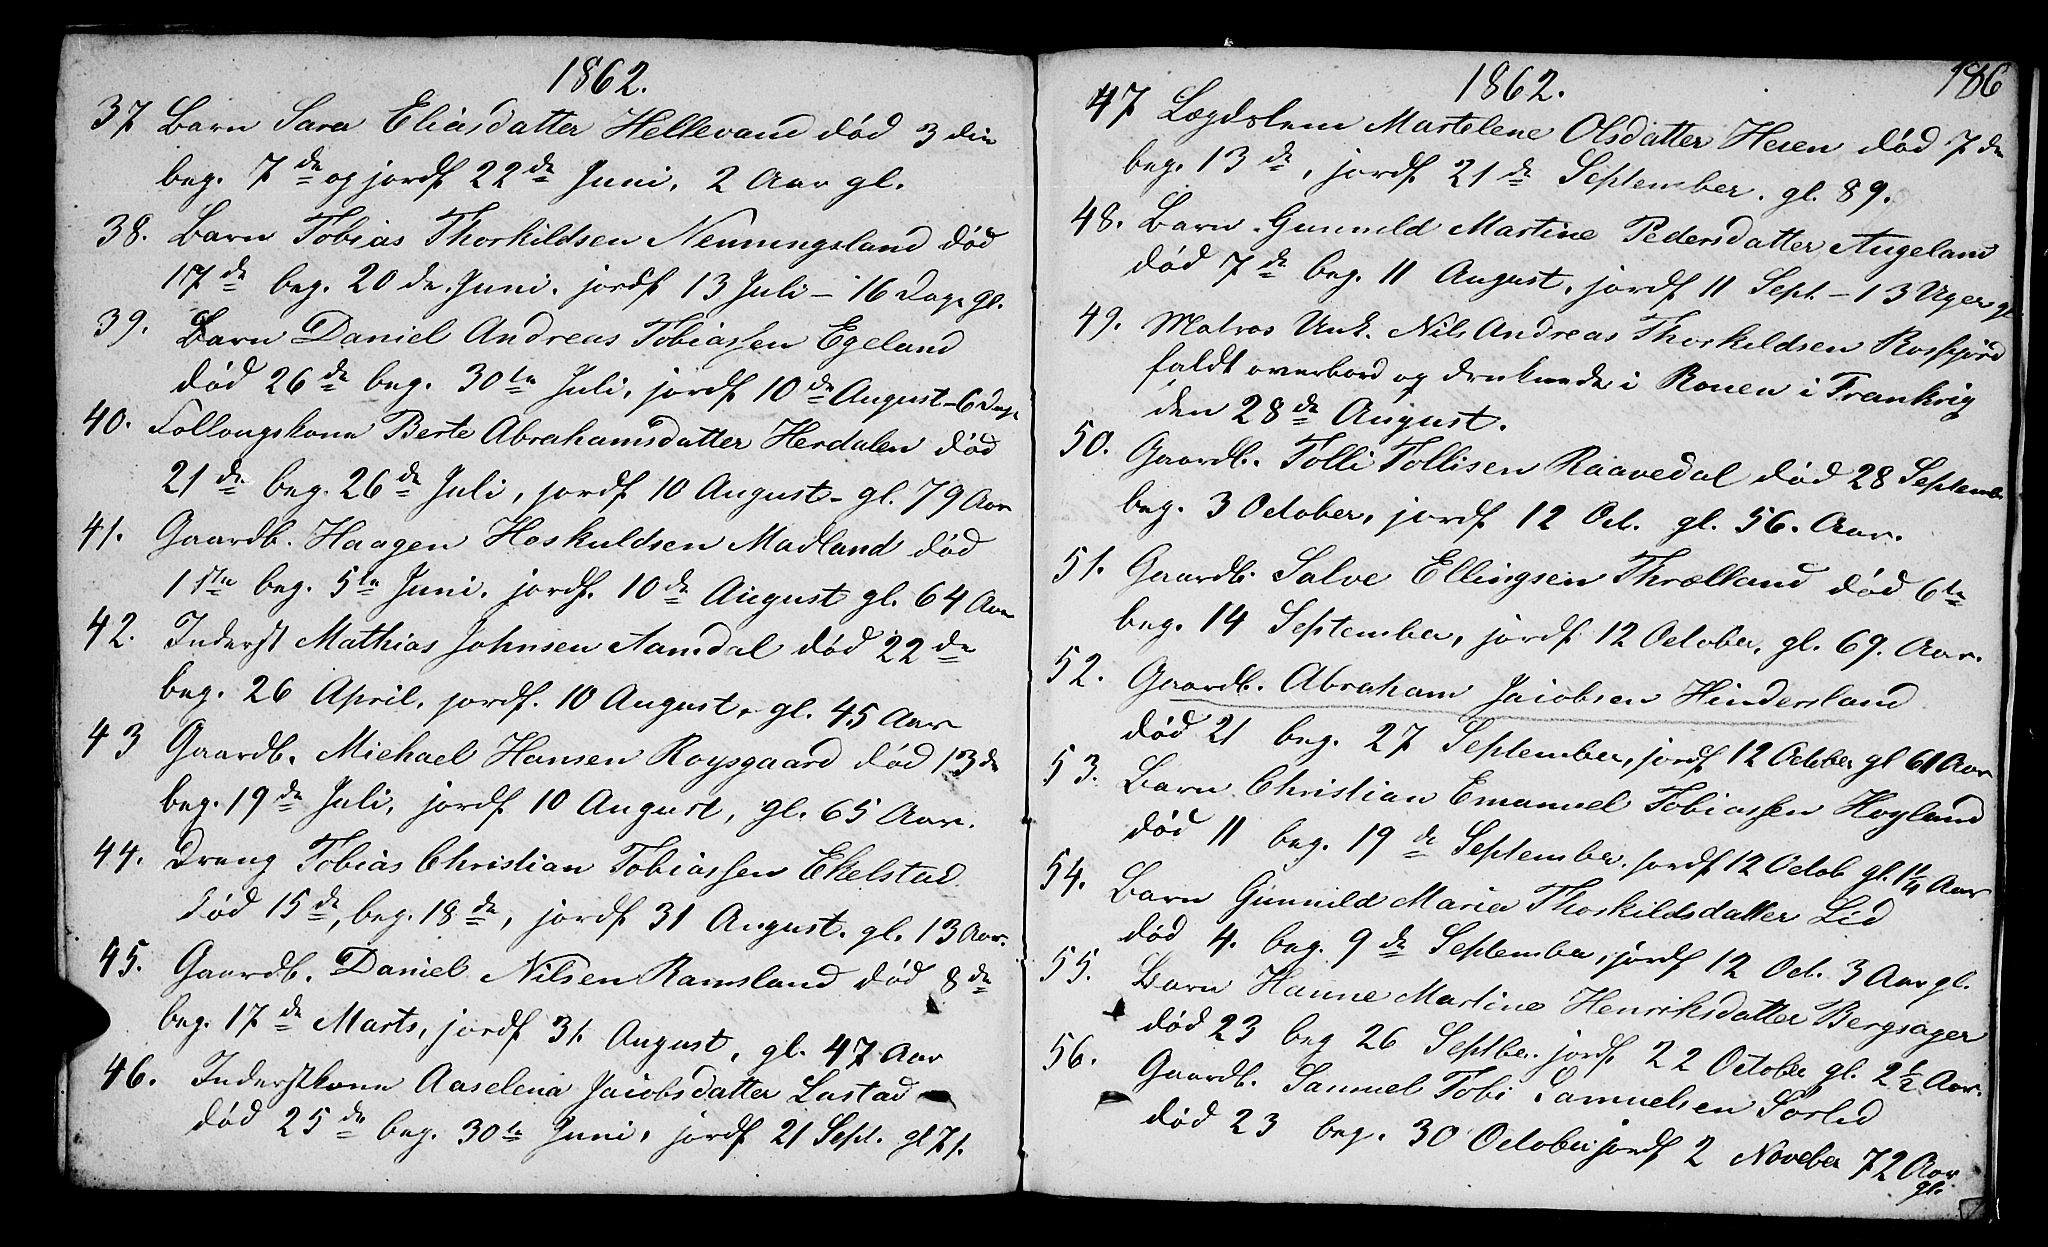 1862.
37 Barn Sara Eliasdatter Hellevand død 3 die
beg. 7de og jordf 22de Juni, 2 Aar gl.
38. Barn Tobias Thorkildsen Nenningsland død
17de beg. 20 de Juni. jordf 13 Juli – 16 Dage gl.
39. Barn Daniel Andreas Tobiassen Egeland
død 26de beg. 30te Juli, jordf 10de August – 6 Dage
40. Follougskone Berte Abrahamsdatter Herdalen død
21de beg. 26de Juli, jordf 10 August – gl. 79 Aar
41. Gaardb. Haagen Hoskuldsen Madland død
1ste beg. 5te Juni. jordf. 10de August gl. 64 Aar
42. Inderst Mathias Johnsen Aamdal død 22de
beg. 26 April, jordf. 10 August, gl. 45 Aar
43 Gaardb. Michael Hansen Roysgaard død 13de
beg. 19de Juli, jordf 10 August, gl. 65 Aar.
44. Dreng Tobias Christian Tobiassen Ekelstad
død 15de, beg. 18de, jordf 31 August. gl. 13 Aar.
45. Gaardb. Daniel Nilsen Ramsland død 8de
beg. 17de Marts, jordf 31 August, gl. 47 Aar
46. Inderstkone Aaselena Jacobsdatter Lastad
død 25de beg. 30te Juni, jordf 21 Sept. gl 71.
1862. 186
47 Lægdslem Martelene Olsdatter Heien død 7de
beg. 13de, jordf 21de September. gl. 89.
48. Barn Gunnild Martine Pedersdatter Augeland
død 7de beg. 11 August, jordf 11 Sept – 13 Uger gl
49. Matros Unk. Nils Andreas Thorkildsen Rosfjord
faldt overbord og druknede i Rouen i Frankrig
den 28de August.
50. Gaardb. Tolli Tollisen Raavedal død 28 Septemb.
beg. 3 October, jordf 12 Oct. gl. 56. Aar.
51. Gaardb. Salve Ellingsen Thrælland død 6te
beg. 14 September, jordf 12 October, gl. 69. Aar.
52. Gaardb. Abraham Jacobsen Hindersland
død 21 beg. 27 September, jordf 12 October gl 61 Aar
53. Barn Christian Emanuel Tobiassen Hoyland
død 11 beg. 19de September. jordf 12 Octob gl. 1 1/4 Aar
54. Barn Gunnild Maria Thorkildsdatter Lid
død 4. beg. 9de September, jordf 12 Oct. 3 Aar gl.
55. Barn Hanne Martine Henriksdatter Bergsager
død 23 beg 26 Septbr. jordf 22 October gl. 2 1/2 Aar.
56. Gaardb. Samuel Tobi Samuelsen Sorlid
død 23 beg. 30 October jordf 2 Noveber 72 Aar
gl.